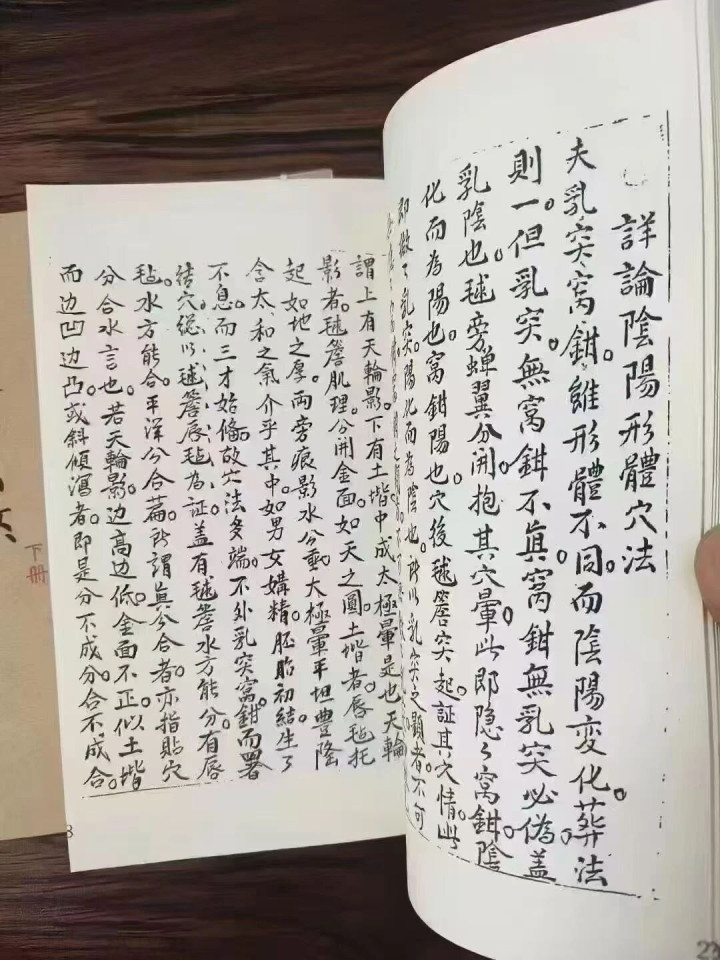 詳論陰陽形體穴法
夫乳突窩鉗。雖形體不同。而陰陽変化。葬法
則一。但乳突無窩鉗不真。窩鉗無乳突必偽盖
乳陰也。毬旁蝉翼分開抱其穴暈。此即隐々窩鉗。陰
化而為陽也。窩鉗陽也。穴後毬簷突起。証其穴情。此
即微々乳突。陽化而為陰也。所以乳突之顯者。不可
謂上有天輪影。下有土堦中成太極暈是也。天輪
影者。毬簷肌理。分開金面。如天之圓。土堦者。唇毡托
起如地之厚。両旁痕影水分乗。大極暈平坦豊隆
含太和之氣介乎其中。如男女媾精。胚胎初結。生々
不息。而三才始備。故穴法多端。不外乳突窩鉗。而署
结穴。總以毬簷唇毡為証。盖有毬簷水方能分。有唇
毡。水方能合。平洋分合。篇所謂真分合者。亦指貼穴
分合水言也。若天輪影边高边低。金面不正。似土堦
而边凹边凸。或斜傾瀉者。即是分不成分。合不成合。
下册